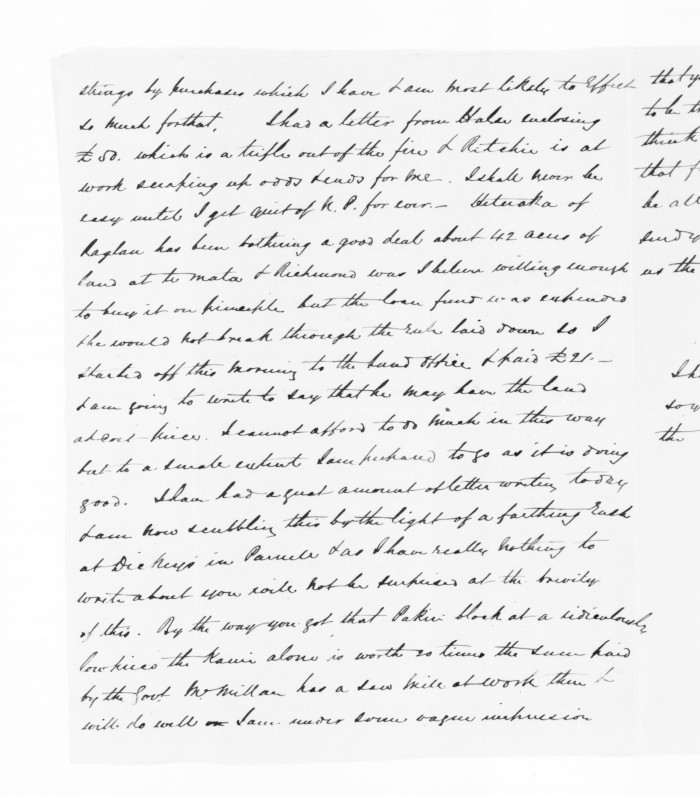 strings by purchases which I have & am most likely to Effect
so much for that. I had a letter from Halse enclosing
£50. which is a trifle out of the fire & Ritchie is at
work scraping up odds & ends for me. I shall never be
easy until I get quit of N.P. for ever. — of
Raglan has been bothering a good deal about 42 acres of
land at te Mata & Richmond was I believe willing enough
to buy it on principle but the loan fund was expended
& he would not break through the rule laid down so I
started off this morning to the Land Office & paid £21. —
& am going to write to say that he may have the land
at cost price. I cannot afford to do much in this way
but to a small extent I am prepared to go as it is doing
good. I have had a great amount of letter writing today
& am now scribbling this by the light of a farthing Rush
at Dickeys in Parnell & as I have really nothing to
write about you will not be surprised at the brevity
of this. By the way you got that Pakiri block at a ridiculously
low price the Kauri alone is worth 20 times the sum paid
by the Govt. McMillan has a saw mill at work there &
will do well I am under some vague impression
that y
to be
think
that f
be all
send y
us the
I h
so y
the